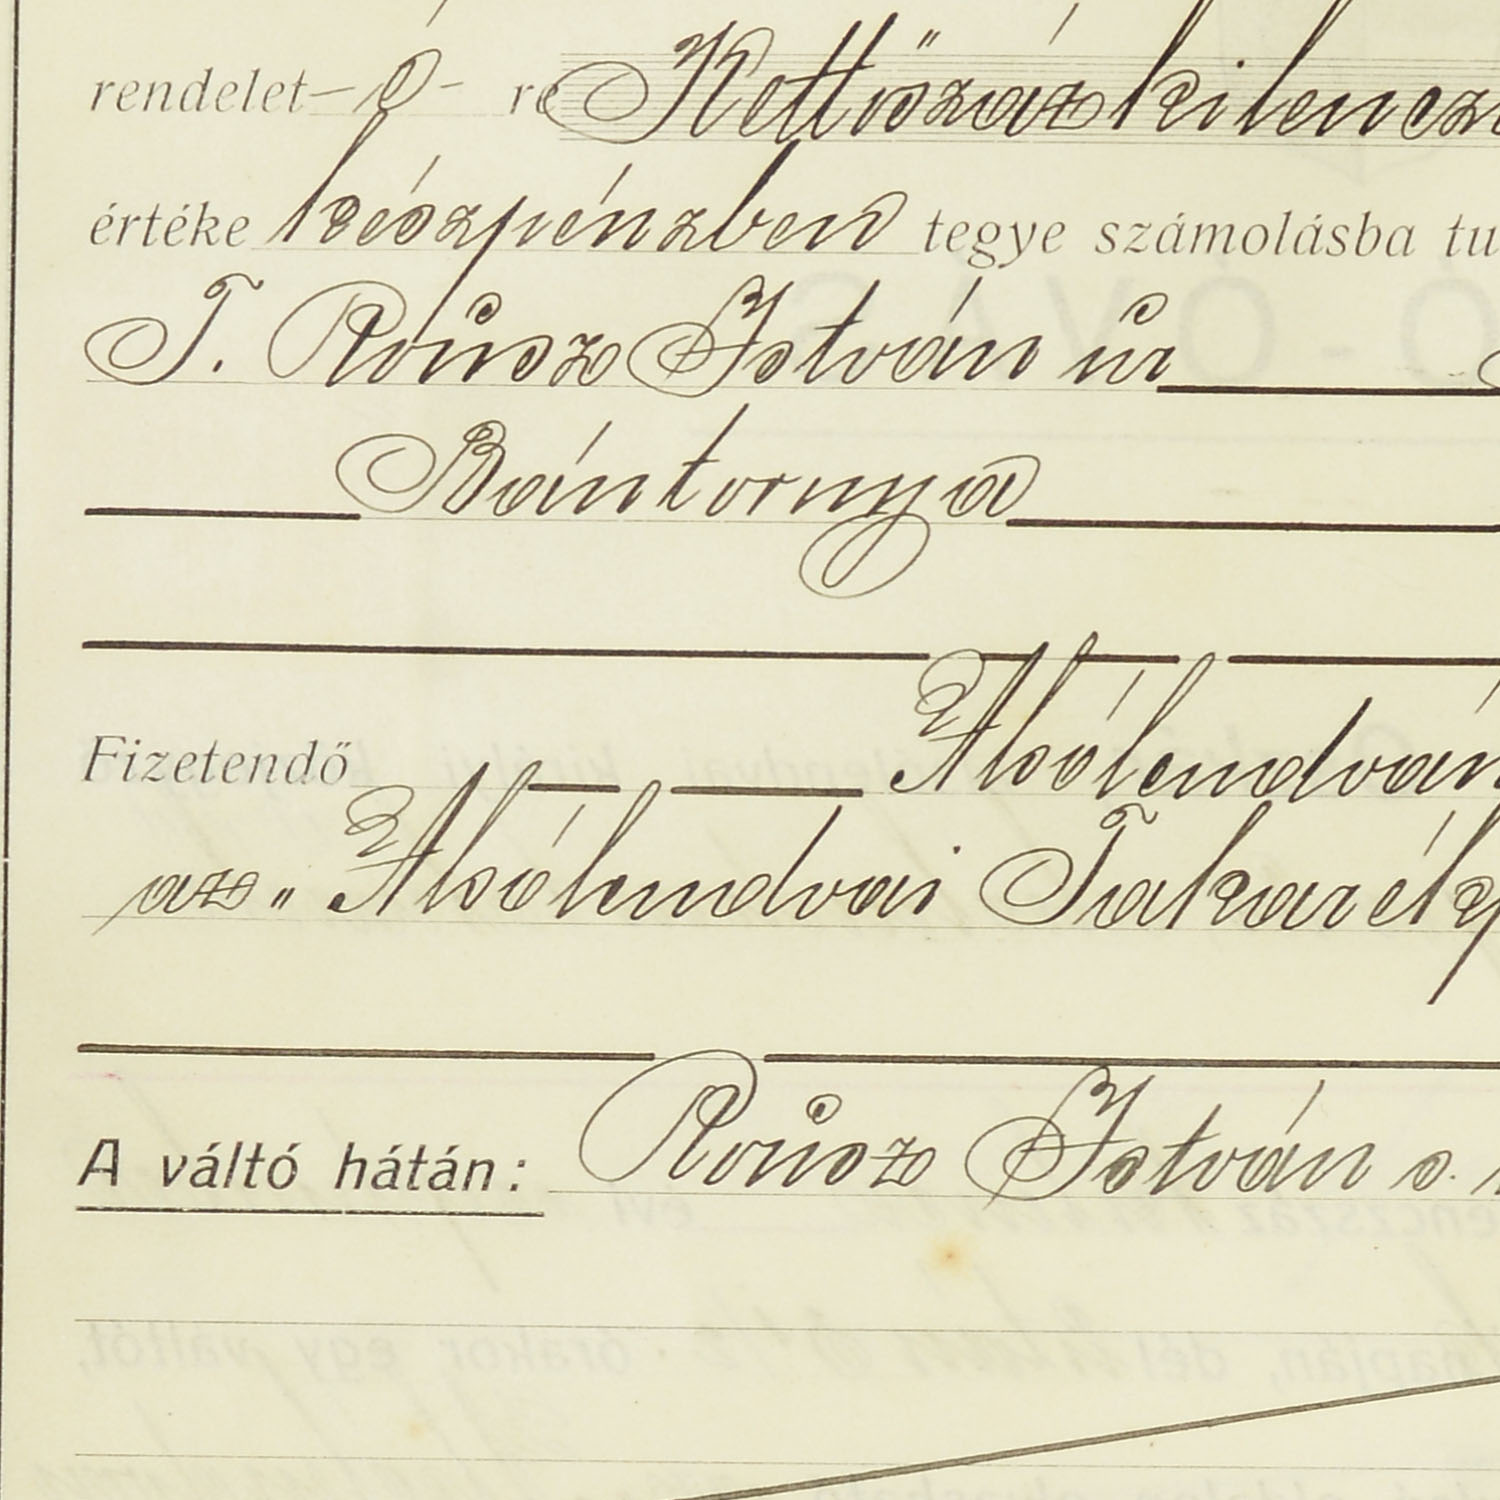 rendelet – ő – re Kettőszázkilencz
értéke készpénzben tegye számolásba tu
T. Rousz István úr
Bántornya
Fizetendő Alsólendván
az „Alsólendvai Takarékp
A váltó hátán: Rousz István s.